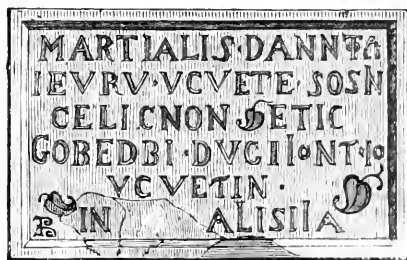 MARTIALIS·DANNTA
IEVRV·VCVETE·SOSN
CELICNON ETIC
GOBEDBI·DVGIIONT·IO
VCVETIN·
IN ALISIIA